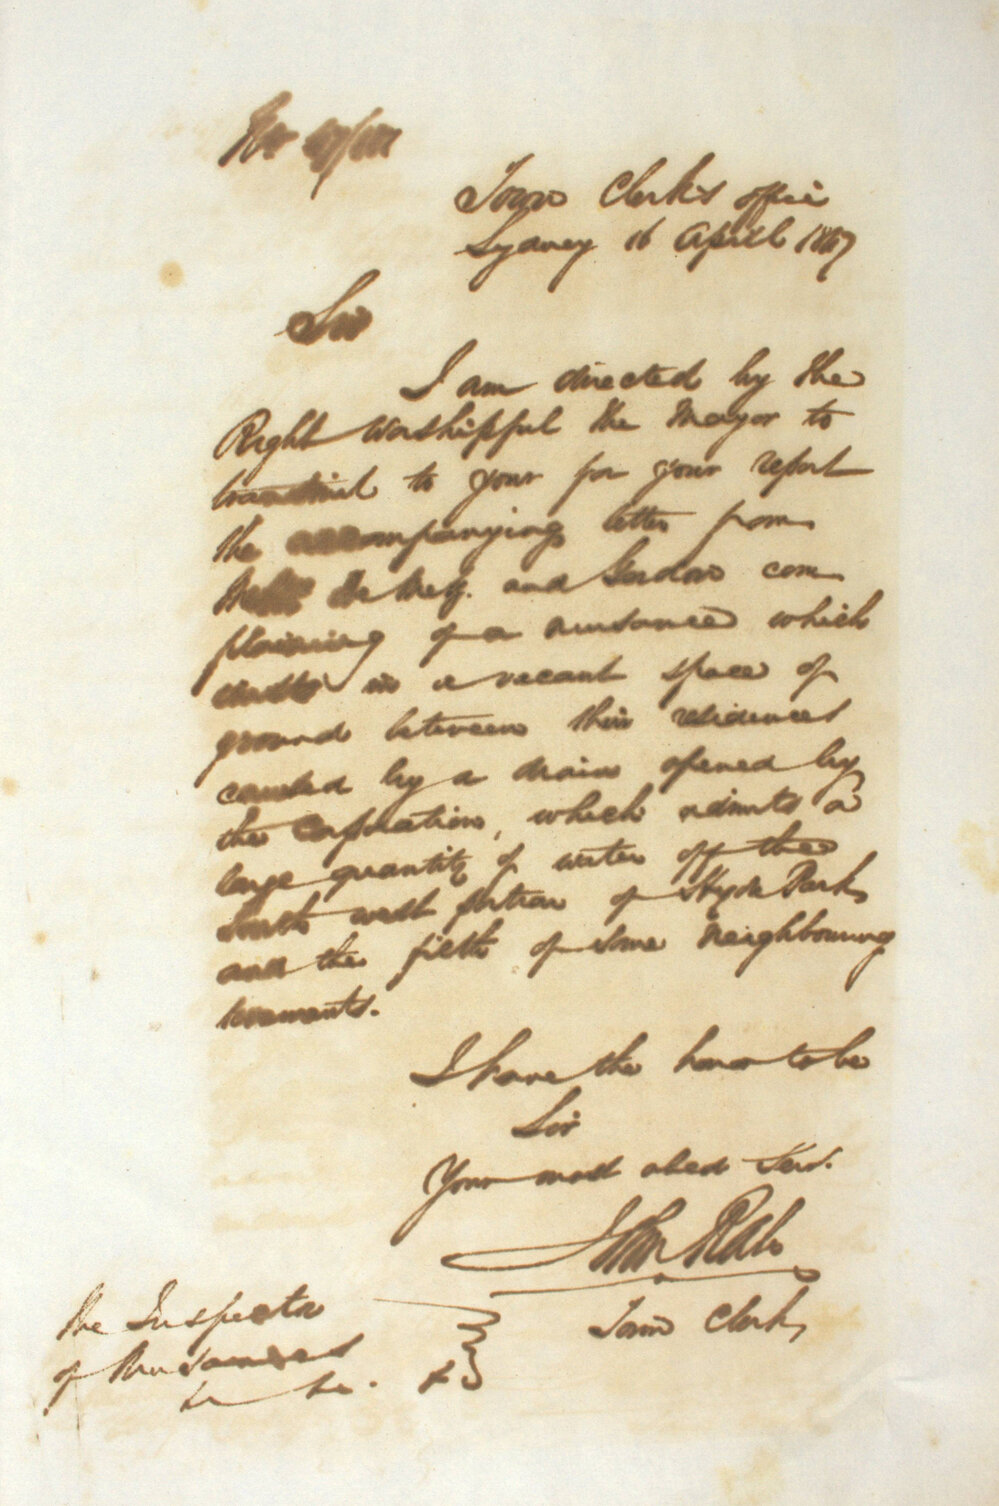 No 47/
Town Clerk's office
Sydney 16 April 1847
Sir
I am directed by the
Right Worshipful the Mayor to
transmit to your for your report
the accompanying letter from
and Gordon com
plaining of a nuisance which
exists in a vacant space of
ground between their residences
caused by a drain opened by
the Corporation, which admits a
large quantity of water off the
South west portion of Hyde Park
and the filth of some neighbouring
tenements.
I have the honor to be
Sir
Your most obed Serv.
John Rae
Town Clerk
The Inspector
of Nuisances
&c &c.